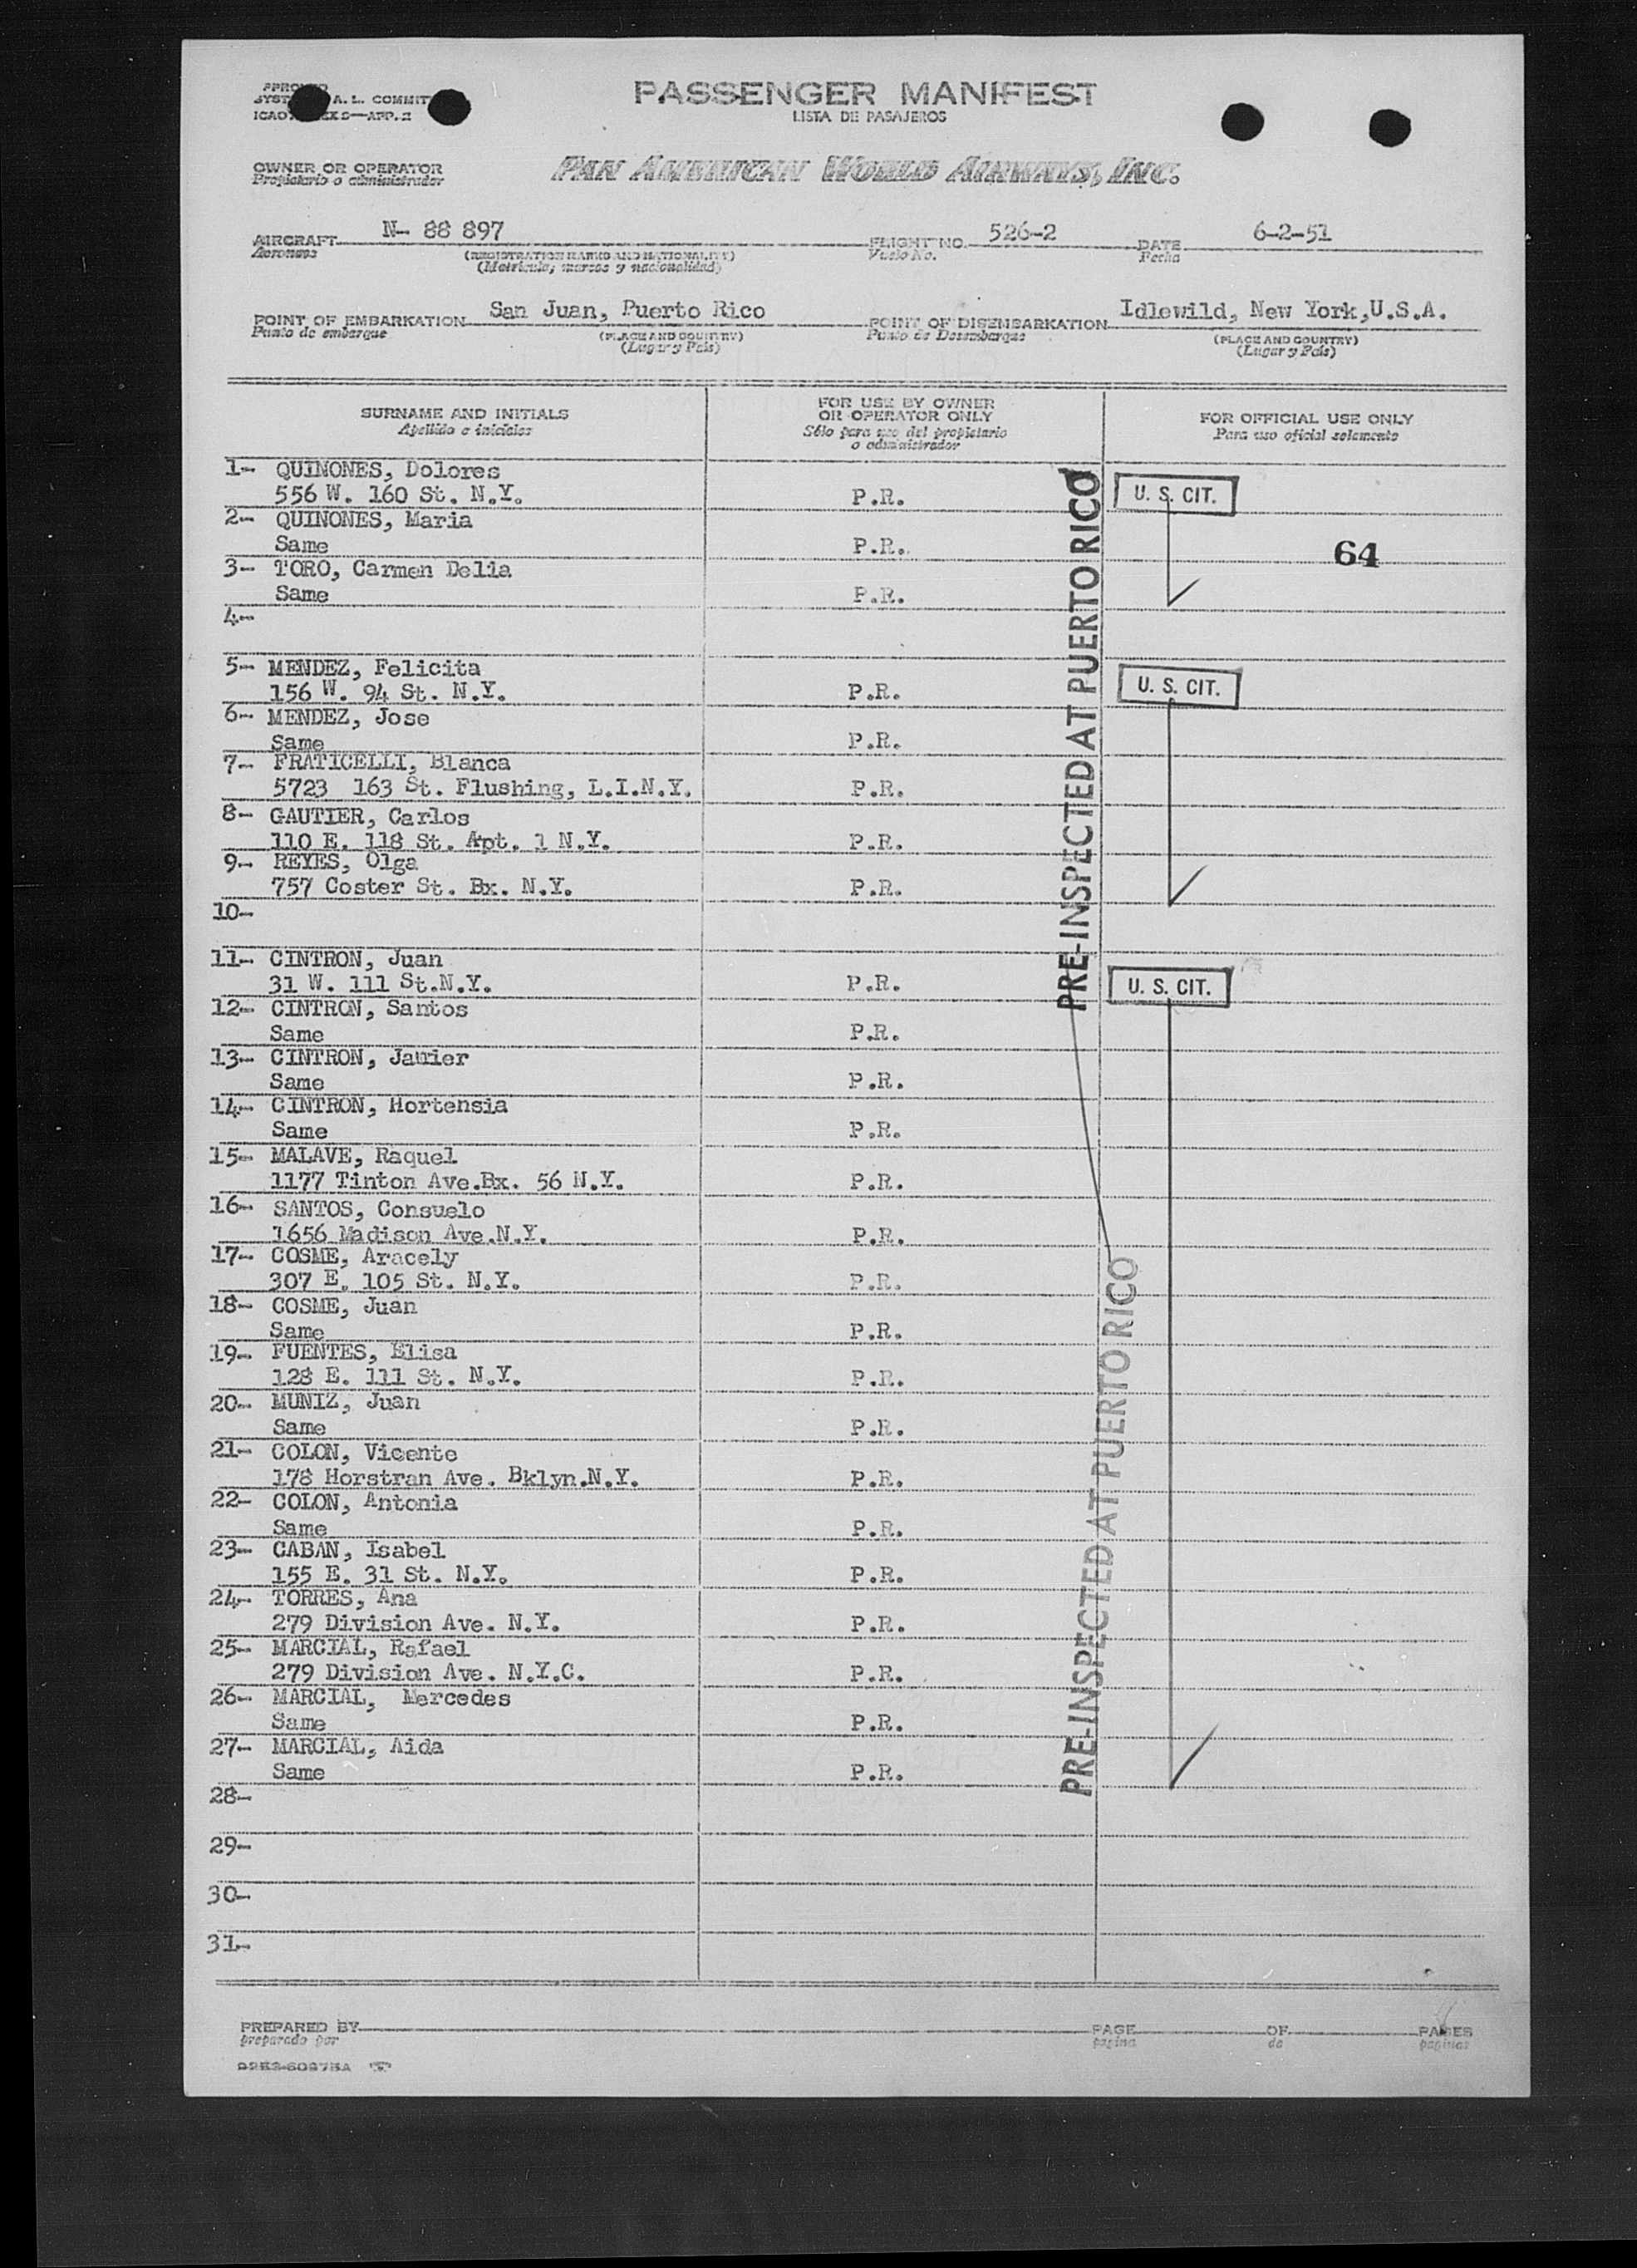 PASSENGER MANIFEST
LISTA DE PASAJEROS
A. L. COMMIT
OWNER OR OPERATOR
Propietario o administrador
PAN AMERICAN WORLD AIRWAYS, INC.
AIRCRAFT N- 88 897 FLIGHT NO. 526-2 DATE 6-2-51
Aeronave (REGISTRATION MARKS AND NATIONALITY) Vuelo No. Fecha
(Matricula, marcas y nacionalidad)
POINT OF EMBARKATION San Juan, Puerto Rico POINT OF DISEMBARKATION Idlewild, New York,U.S.A.
Punto de embarque (PLACE AND COUNTRY) Punto de Desembarque (PLACE AND COUNTRY)
(Lugar y Pais) (Lugar y Pais)
SURNAME AND INITIALS
Apellido e iniciales
FOR USE BY OWNER
OR OPERATOR ONLY
Sólo para uso del propietario
o administrador
FOR OFFICIAL USE ONLY
Para uso oficial solamente
1- QUINONES, Dolores
556 W. 160 St. N.Y. P.R. U. S. CIT.
2- QUINONES, Maria
Same P.R. 64
3- TORO, Carmen Delia
Same P.R.
4-
5- MENDEZ, Felicita
156 W. 94 St. N.Y. P.R. U. S. CIT.
6- MENDEZ, Jose
Same P.R.
7- FRATICELLI, Blanca
5723 163 St. Flushing, L.I.N.Y. P.R.
8- GAUTIER, Carlos
110 E. 118 St. Apt. 1 N.Y. P.R.
9- REYES, Olga
757 Coster St. Bx. N.Y. P.R.
10-
PRE-INSPECTED AT PUERTO RICO
11- CINTRON, Juan
31 W. 111 St.N.Y. P.R. U. S. CIT.
12- CINTRON, Santos
Same P.R.
13- CINTRON, Javier
Same P.R.
14- CINTRON, Hortensia
Same P.R.
15- MALAVE, Raquel
1177 Tinton Ave.Bx. 56 N.Y. P.R.
16- SANTOS, Consuelo
1656 Madison Ave.N.Y. P.R.
17- COSME, Aracely
307 E. 105 St. N.Y. P.R.
18- COSME, Juan
Same P.R.
19- FUENTES, Elisa
128 E. 111 St. N.Y. P.R.
20- MUNIZ, Juan
Same P.R.
21- COLON, Vicente
178 Horstran Ave. Bklyn.N.Y. P.R.
22- COLON, Antonia
Same P.R.
23- CABAN, Isabel
155 E. 31 St. N.Y. P.R.
24- TORRES, Ana
279 Division Ave. N.Y. P.R.
25- MARCIAL, Rafael
279 Division Ave. N.Y.C. P.R.
26- MARCIAL, Mercedes
Same P.R.
27- MARCIAL, Aida
Same P.R.
PRE-INSPECTED AT PUERTO RICO
28-
29-
30-
31-
PREPARED BY PAGE OF PAGES
preparado por pagina de paginas